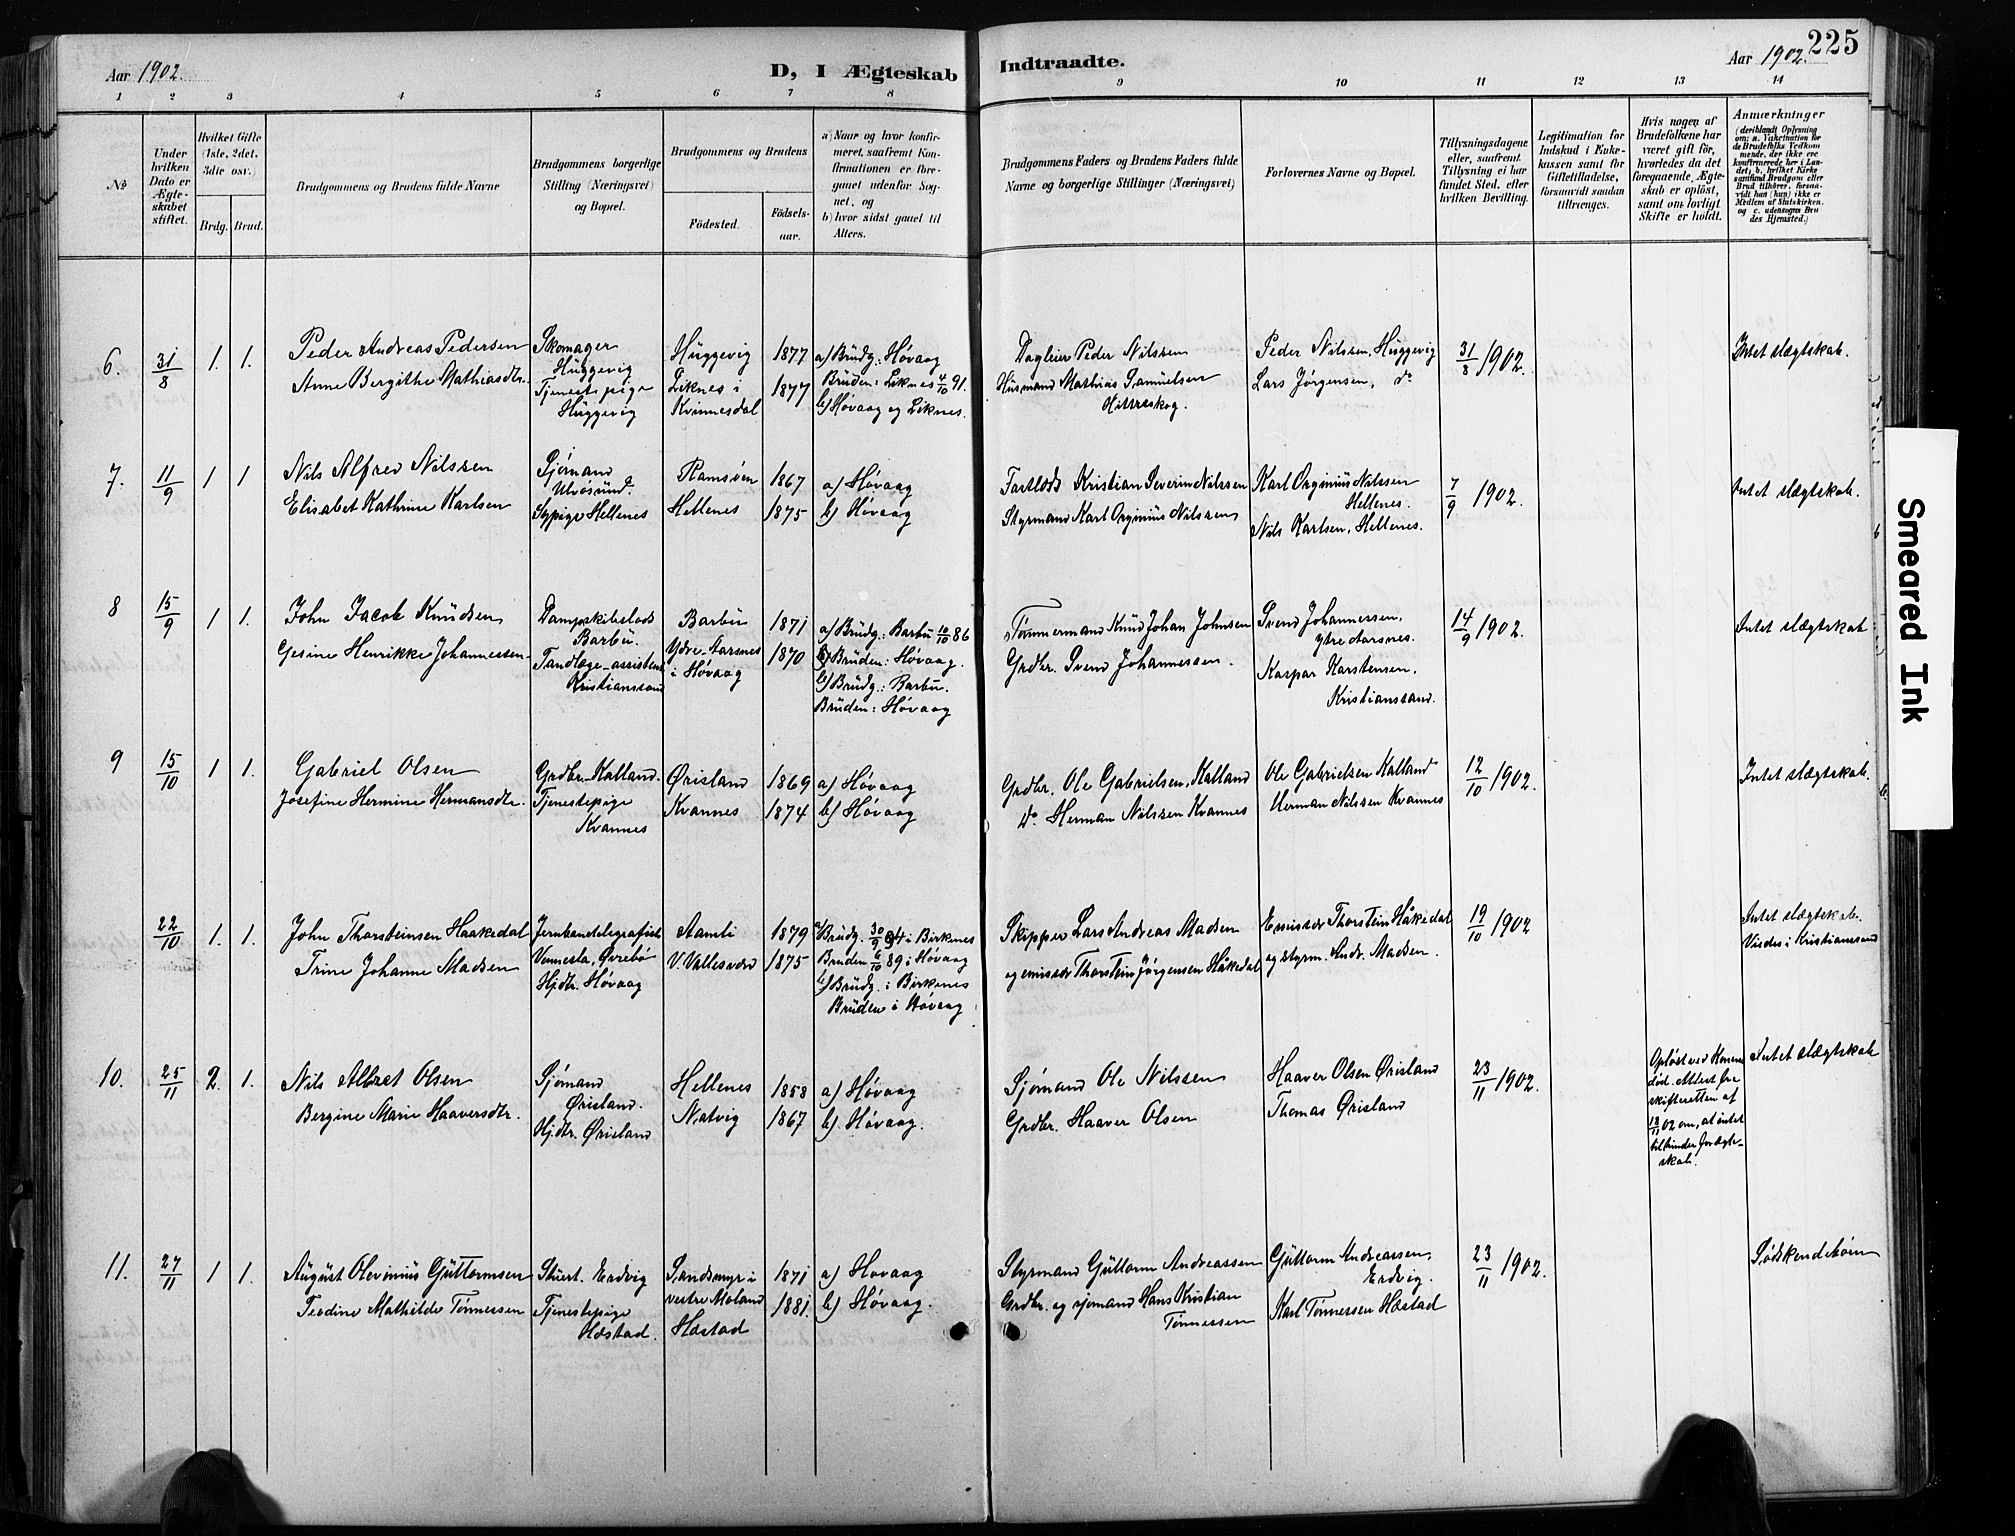 Aar 1902.
D, I Ægteskab Indtraadte.
Aar 1902.
225
1 2 3 4 5 6 7 8 9 10 11 12 13 14
№
Under hvilken Dato er Ægteskabet stiftet.
Hvilket Gifte (1ste, 2det, 3die osv.)
Brdg. Brud.
Brudgommens og Brudens fulde Navne
Brudgommens borgerlige Stilling (Næringsvei) og Bopæl.
Brudgommens og Brudens
Födested.
Födsels-aar.
a) Naar og hvor konfirmeret, saafremt Konfirmationen er foregaaet udenfor Sognet, og
b) hvor sidst gaaet til Alters.
Brudgommens Faders og Brudens Faders fulde Navne og borgerlige Stillinger (Næringsvei)
Forlovernes Navne og Bopæl.
Tillysningsdagene eller, saafremt Tillysning ei har fundet Sted, efter hvilken Bevilling.
Legitimation for Indskud i Enkekassen samt for Giftetilladelse, forsaavidt saadan tiltrænges.
Hvis nogen af Brudefolkene har været gift før, hvorledes da det foregaaende Ægteskab er opløst, samt om lovligt Skifte er holdt.
Anmærkninger
(deriblandt Oplysning om: a. Vakcination for de Brudefolks Vedkommende, der ikke ere konfirmerede her i Landet; b. hvilket Kirkesamfund Brudgom eller Brud tilhörer, forsaavidt han (hun) ikke er Medlem af Statskirken, og c. udensogns Brudes Hjemsted.)
6. 31/8 1. 1.
Peder Andreas Pedersen
Anne Bergithe Mathiasdtr.
Skomager
Huggevig
Tjenestepige
Huggevig
Huggevig 1877
Liknes i
Kvinnesdal 1877
a) Brudg.: Høvaag
Bruden: Liknes 4/10 91.
b) Høvaag og Liknes.
Daglein Peder Nilssen
Husmand Mathias Samuelsen
Peder Nilssen, Huggevig
Lars Jørgensen, do
31/8 1902.
Intet slægtskab.
7. 11/9 1 1
Nils Alfred Nilssen
Elisabet Kathrine Karlsen
Sjømand
Ulvøsund.
Sypige Hellenes
Ramsøen 1867
Hellenes 1875
a) Høvaag
b) Høvaag
Kristian Severin Nilssen
Styrmand Karl Orginius Nilssen
Karl Orginius Nilssen
Hellenes.
Nils Karlsen, Hellenes.
7/9 1902.
Intet slægtskab.
8 15/9 1 1.
John Jacob Knudsen
Gesine Henrikke Johannessen
Barbu.
Tandlæge-assistent
Kristianssand
Barbu 1871
Ydre-Aarsnes
i Høvaag 1870
a) Brudg.: Barbu 10/10 86
Bruden: Høvaag.
b) Brudg.: Barbu.
Bruden: Høvaag
Tømmermand Knud Johan Johnsen
Grdbr. Svend Johannessen.
Svend Johannessen,
ytre Aarsnes.
Kaspar Karstensen,
Kristianssand.
14/9 1902.
Intet slægtskab
9 15/10 1 1.
Gabriel Olsen
Josefine Hermine Hermansdtr.
Grdbr. Kalland.
Tjenestepige
Kvannes
Ørisland 1869
Kvannes 1874
a) Høvaag
b) Høvaag
Grdbr. Ole Gabrielsen, Kalland
do. Herman Nilssen Kvannes
Ole Gabrielsen Kalland
Herman Nilssen Kvannes
12/10 1902.
Intet slægtskab.
22/10 1. 1.
John Thorsteinsen Haakedal
Trine Johanne Madsen
Jernbanetelegrafist
Vennesla, Øvrebø
Hjdtr. Høvaag
Aamli 1879
V. Vallesverd 1875
a) Brudg. 30/9 94 i Birkenes
Bruden 6/10 89 i Høvaag
b) Brudg. i Birkenes
Bruden i Høvaag
Skipper Lars Andreas Madsen
og emissær Thorstein Jørgensen Håkedal
Emissær Thorstein Håkedal
og styrm. Andr. Madsen.
19/10 1902
Intet slægtskab.
Viedes i Kristianssand
10. 25/11 2. 1.
Nils Albret Olsen
Bergine Marie Haaversdtr.
Sjømand
Ørisland.
Hjdtr. Ørisland
Hellenes 1858
Natvig 1867
a) Høvaag
b) Høvaag.
Sjømand Ole Nilssen
Grdbr. Haaver Olsen
Haaver Olsen Ørisland
Thomas Ørisland
23/11 1902.
Opløst ved Konens
død. Attest fra
skifteretten af
02 om, at intet
til hinder for ægte-
skab.
Intet slægtskab
11. 27/11 1 1.
August Olevinius Guttormsen
Teodine Mathilde Tønnessen
Stuert. Erdvig
Tjenestepige
Hæstad.
Sandsmyr i
vestre Moland 1871
Hæstad 1881.
a) Høvaag
b) Høvaag.
Styrmand Guttorm Andreassen
Grdbr. og sjømand Hans Kristian
Tønnessen
Guttorm Andreassen,
Erdvig.
Karl Tønnessen Hæstad
23/11 1902.
Sødskendebørn
Smeared Ink